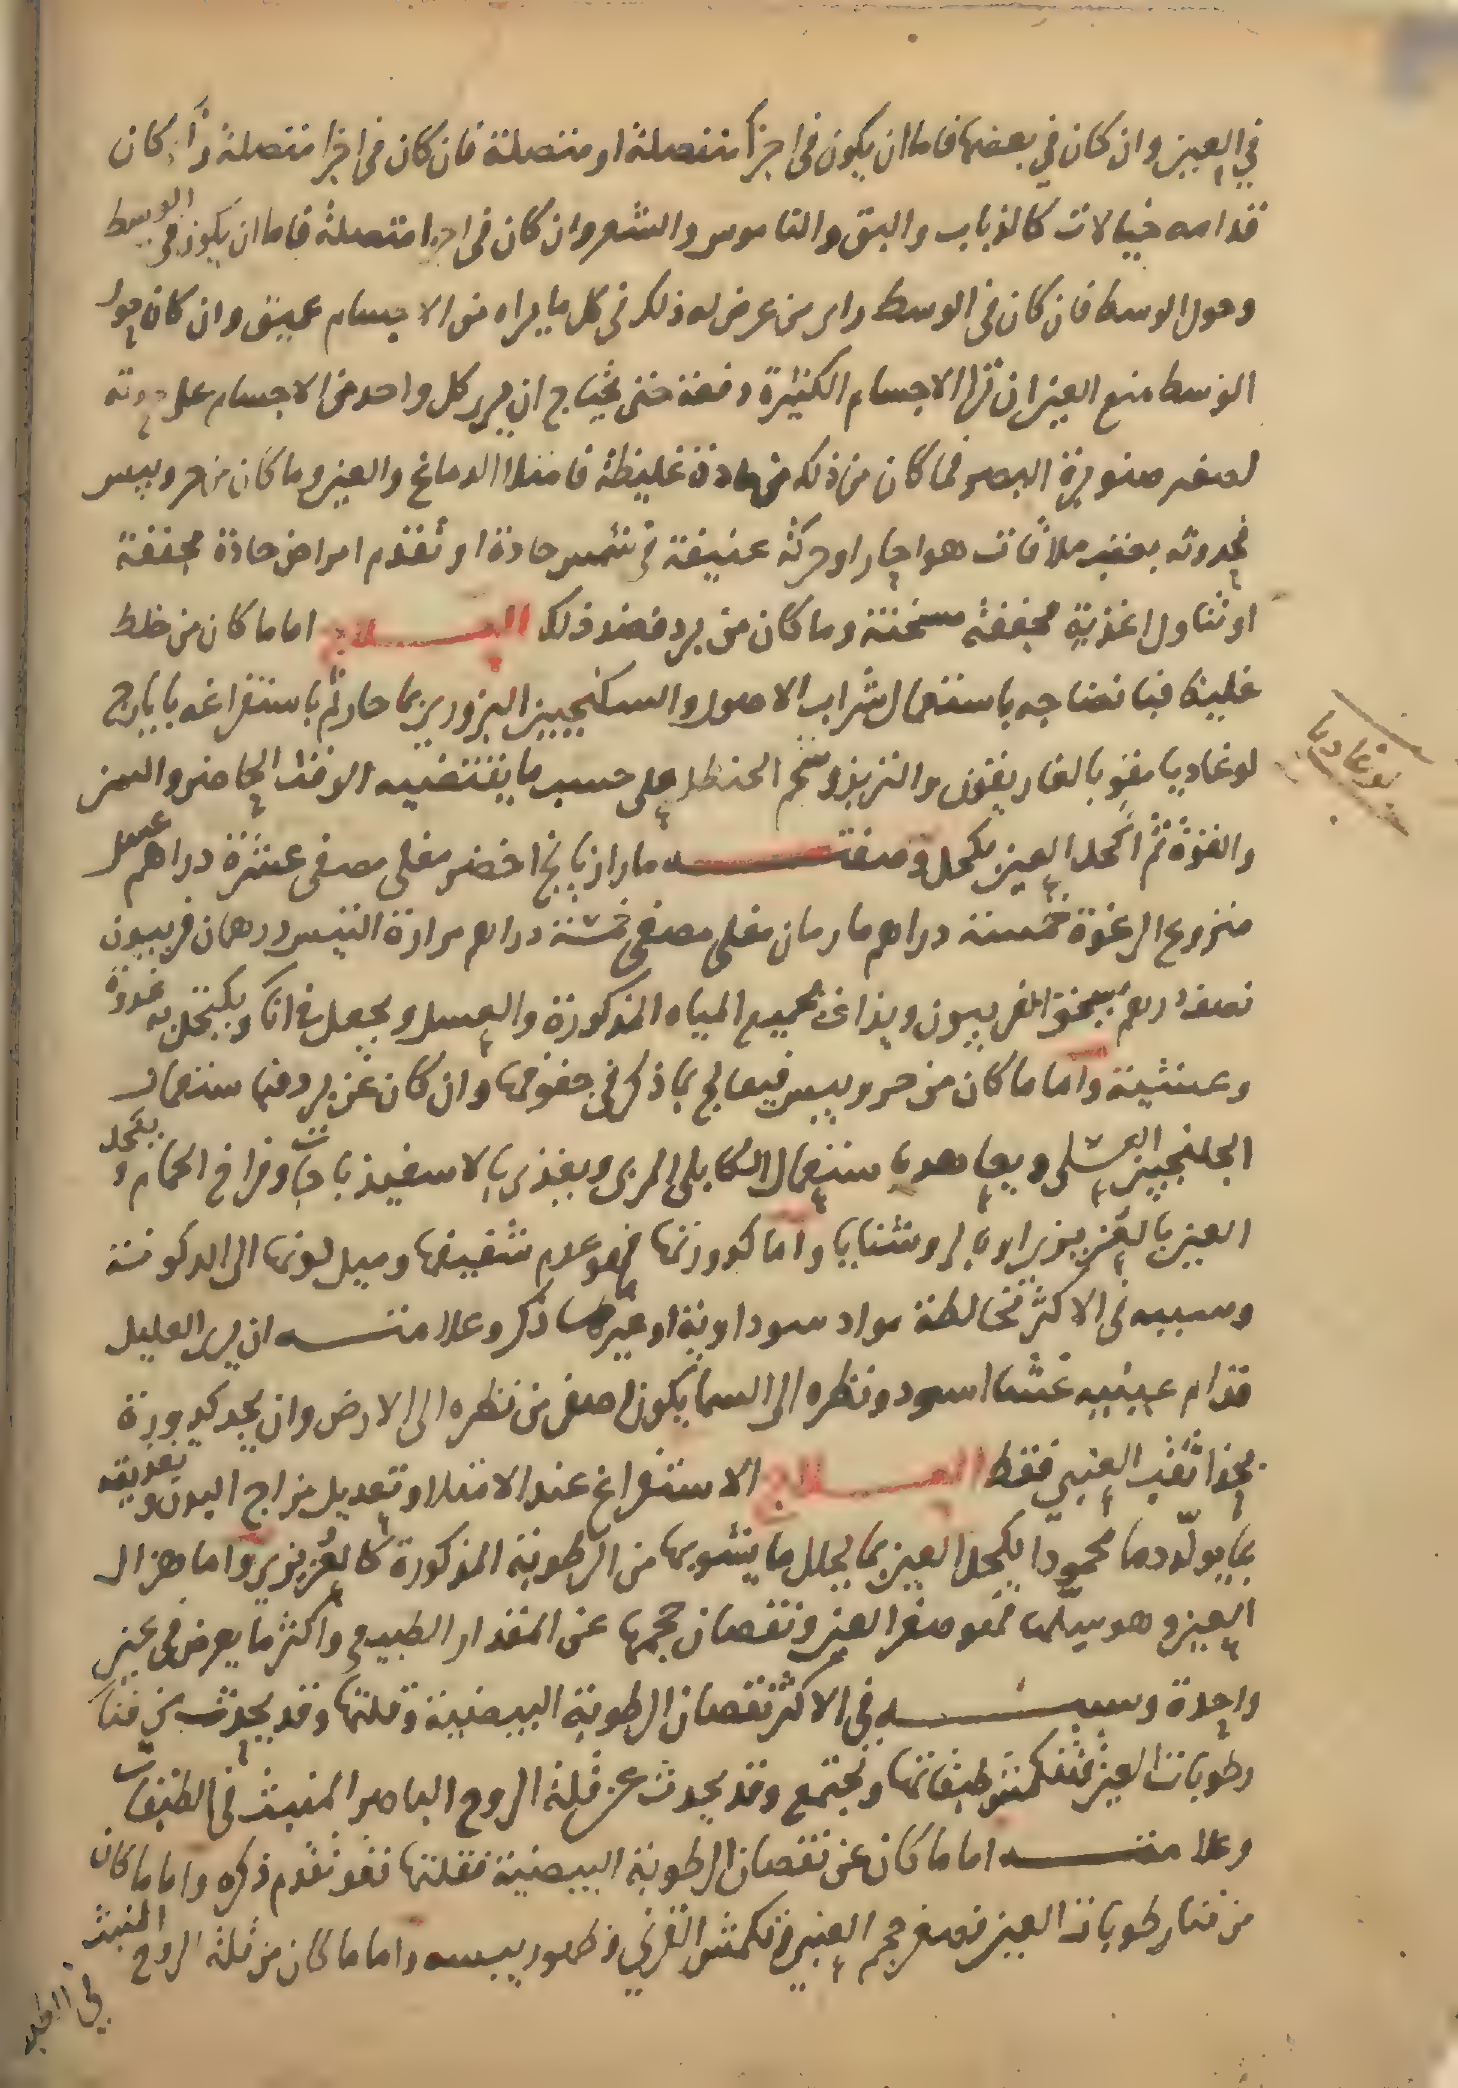 في العين وان كان في بعضها فاما ان يكون في اجزأ منفصلة او متصلة فان كان في اجزا منفصلة رأى كان
قدامه خيالات كالذباب والبق والناموس والشعر وان كان في اجزا متصلة فاما ان يكون في الوسط
وحول الوسط فان كان في الوسط راى من عرض له ذلك في كل ما يراه من الاجسام عميق وان كان حول
الوسط منع العين ان ترا الاجسام الكثيرة دفعة حتى يحتاج ان يرى كل واحد من الاجسام على حدته
لصغر صنوبرة البصر فما كان من ذلك من مادة غليظة فامتلا الدماغ والعين وما كان من حر ويبس
فحدوثه بعقب ملاقات هوا حار او حركة عنيفة في شمس حادة او تقدم امراض حادة مجففة
او تناول اغذية مجففة مسخنة وما كان من برد فضد ذلك العلاج اما ما كان من خلط
غليظ فبانضاجه باستعمال شراب الاصول والسكنجبين البزوري بما حار ثم باستفراغه بايارج
لوغاديا مقوي بالغاريقون والتربد وشحم الحنظل على حسب ما يقتضيه الوقت الحاضر والسن
لوغاديا
والقوة ثم اكحل العين بكحل وصفته ما رازيانج اخضر مغلى مصفى عشرة دراهم عسل
منزوع الرغوة خمسة دراهم ما رمان مغلى مصفى خمسة دراهم مرارة التيس درهمان فربيون
نصف درهم يسحق الفربيون ويذاف بجميع المياه المذكورة والعسل ويجعل في انا ويكتحل به غدوة
وعشية واما ما كان من حر ويبس فيعالج بما ذكر في جفوفها وان كان عن برد فباستعمال
الجلنجبين العسلي ويعاهد باستعمال الكابلي المربى ويغذى بالاسفيذباجات وفراخ الحمام ويكحل
العين بالعزيزي او بالروشنايا واما كدورتها فهو عدم شفيفها وميل لونها الى الدكونة
وسببه في الاكثر مخالطة مواد سوداوية او غيرها ذكر وعلامته ان يرى العليل
قدام عينيه غشا اسود ونظره الى السما يكون اصفى من نظره الى الارض وان يجد كدورة
بحذا ثقب العنبي فقط العلاج الاستفراغ عند الامتلا وتعديل مزاج البدن وتغذيته
بما يولد دما محمودا يكحل العين بما يحلل ما يشوبها من الرطوبة المذكورة كالعزيزي واما هزال
العين وهو سلها فهو صغر العين ونقصان حجمها عن المقدار الطبيعي واكثر ما يعرض في عين
واحدة وسببه في الاكثر نقصان الرطوبة البيضية وقلتها وقد يحدث عن فنا
رطوبات العين فتنكمش طبقاتها وتجتمع وقد يحدث عن قلة الروح الباصر المنبث في الطبقات
وعلامته اما ما كان عن نقصان الرطوبة البيضية فقلتها فقد تقدم ذكره واما ما كان
من فنا رطوبات العين فصغر حجم العين وتكمش القرني وظهور يبسه واما ما كان من قلة الروح المنبث
في الطبقا